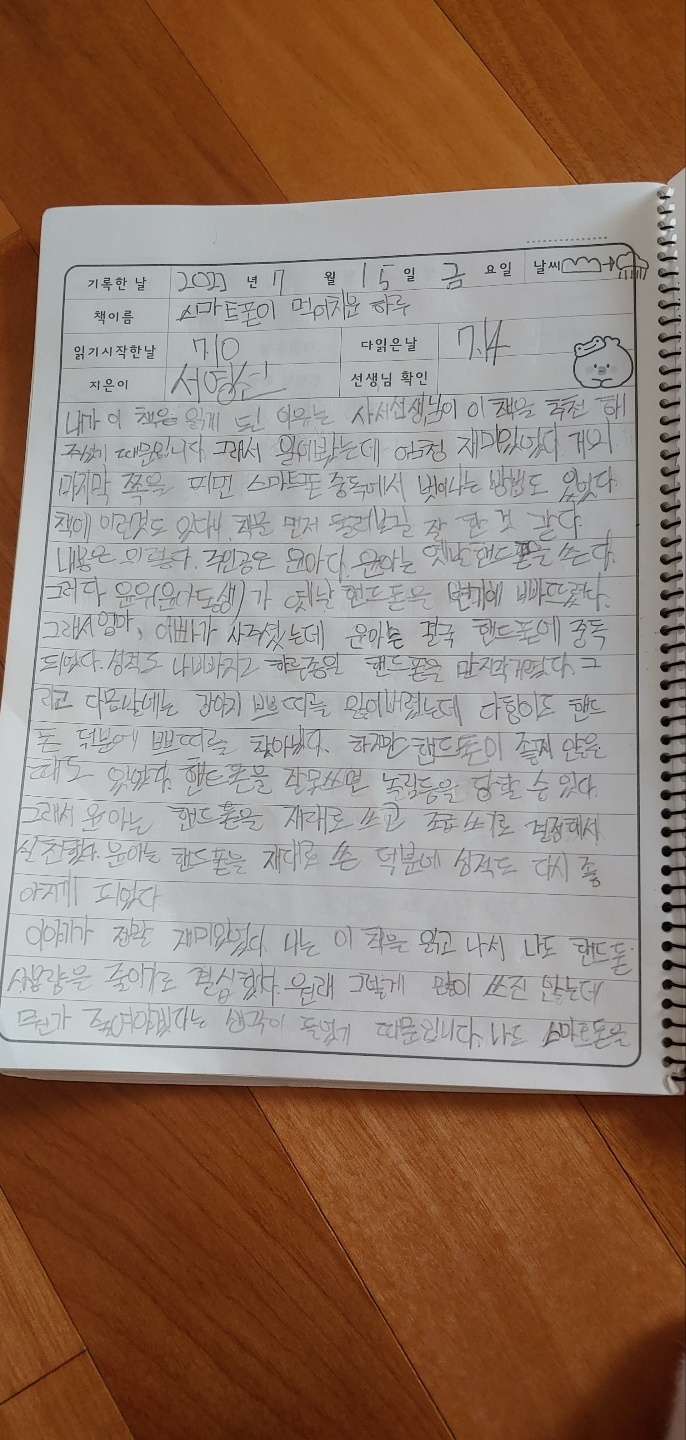 기록한 날 2022 년 7 월 15 일 금 요일 날씨
책이름 스마트폰이 먹어치운 하루
읽기시작한날 7.10 다읽은날 7.14
지은이 서영선 선생님 확인
내가 이 책을 읽게 된 이유는 사서선생님이 이 책을 추천 해
주셨기 때문입니다. 그래서 읽어봤는데 엄청 재미있었다. 게다
마지막 쪽을 펴면 스마트폰 중독에서 벗어나는 방법도 있었다.
책에 이런것도 있다니, 책을 먼저 둘러보길 잘 한 것 같다.
내용은 이렇다. 주인공은 윤아다. 윤아는 옛날핸드폰을 쓴다.
그러다 윤우(윤아동생)가 옛날 핸드폰을 변기에 빠뜨렸다.
그래서 엄마, 아빠가 사주셨는데 윤아는 결국 핸드폰에 중독
되었다. 성적도 나빠지고 하루종일 핸드폰을 만지작거렸다. 그
리고 다음날에는 강아지 쁘띠를 잃어버렸는데 다행이도 핸드
폰 덕분에 쁘띠를 찾아냈다. 하지만 핸드폰이 좋지 않은
때도 있었다. 핸드폰을 잘못쓰면 놀림등을 당할 수 있다.
그래서 윤아는 핸드폰을 재대로 쓰고 조금 쓰기로 결정해서
실천했다. 윤아는 핸드폰을 재대로 쓴 덕분에 성적도 다시 좋
아지게 되었다.
이야기가 정말 재미있었다. 나는 이 책을 읽고 나서 나도 핸드폰
사용량을 줄이기로 결심했다. 원래 그렇게 많이 쓰진 않는데
뭔가 줄여야겠다는 생각이 들었기 때문입니다. 나도 스마트폰을